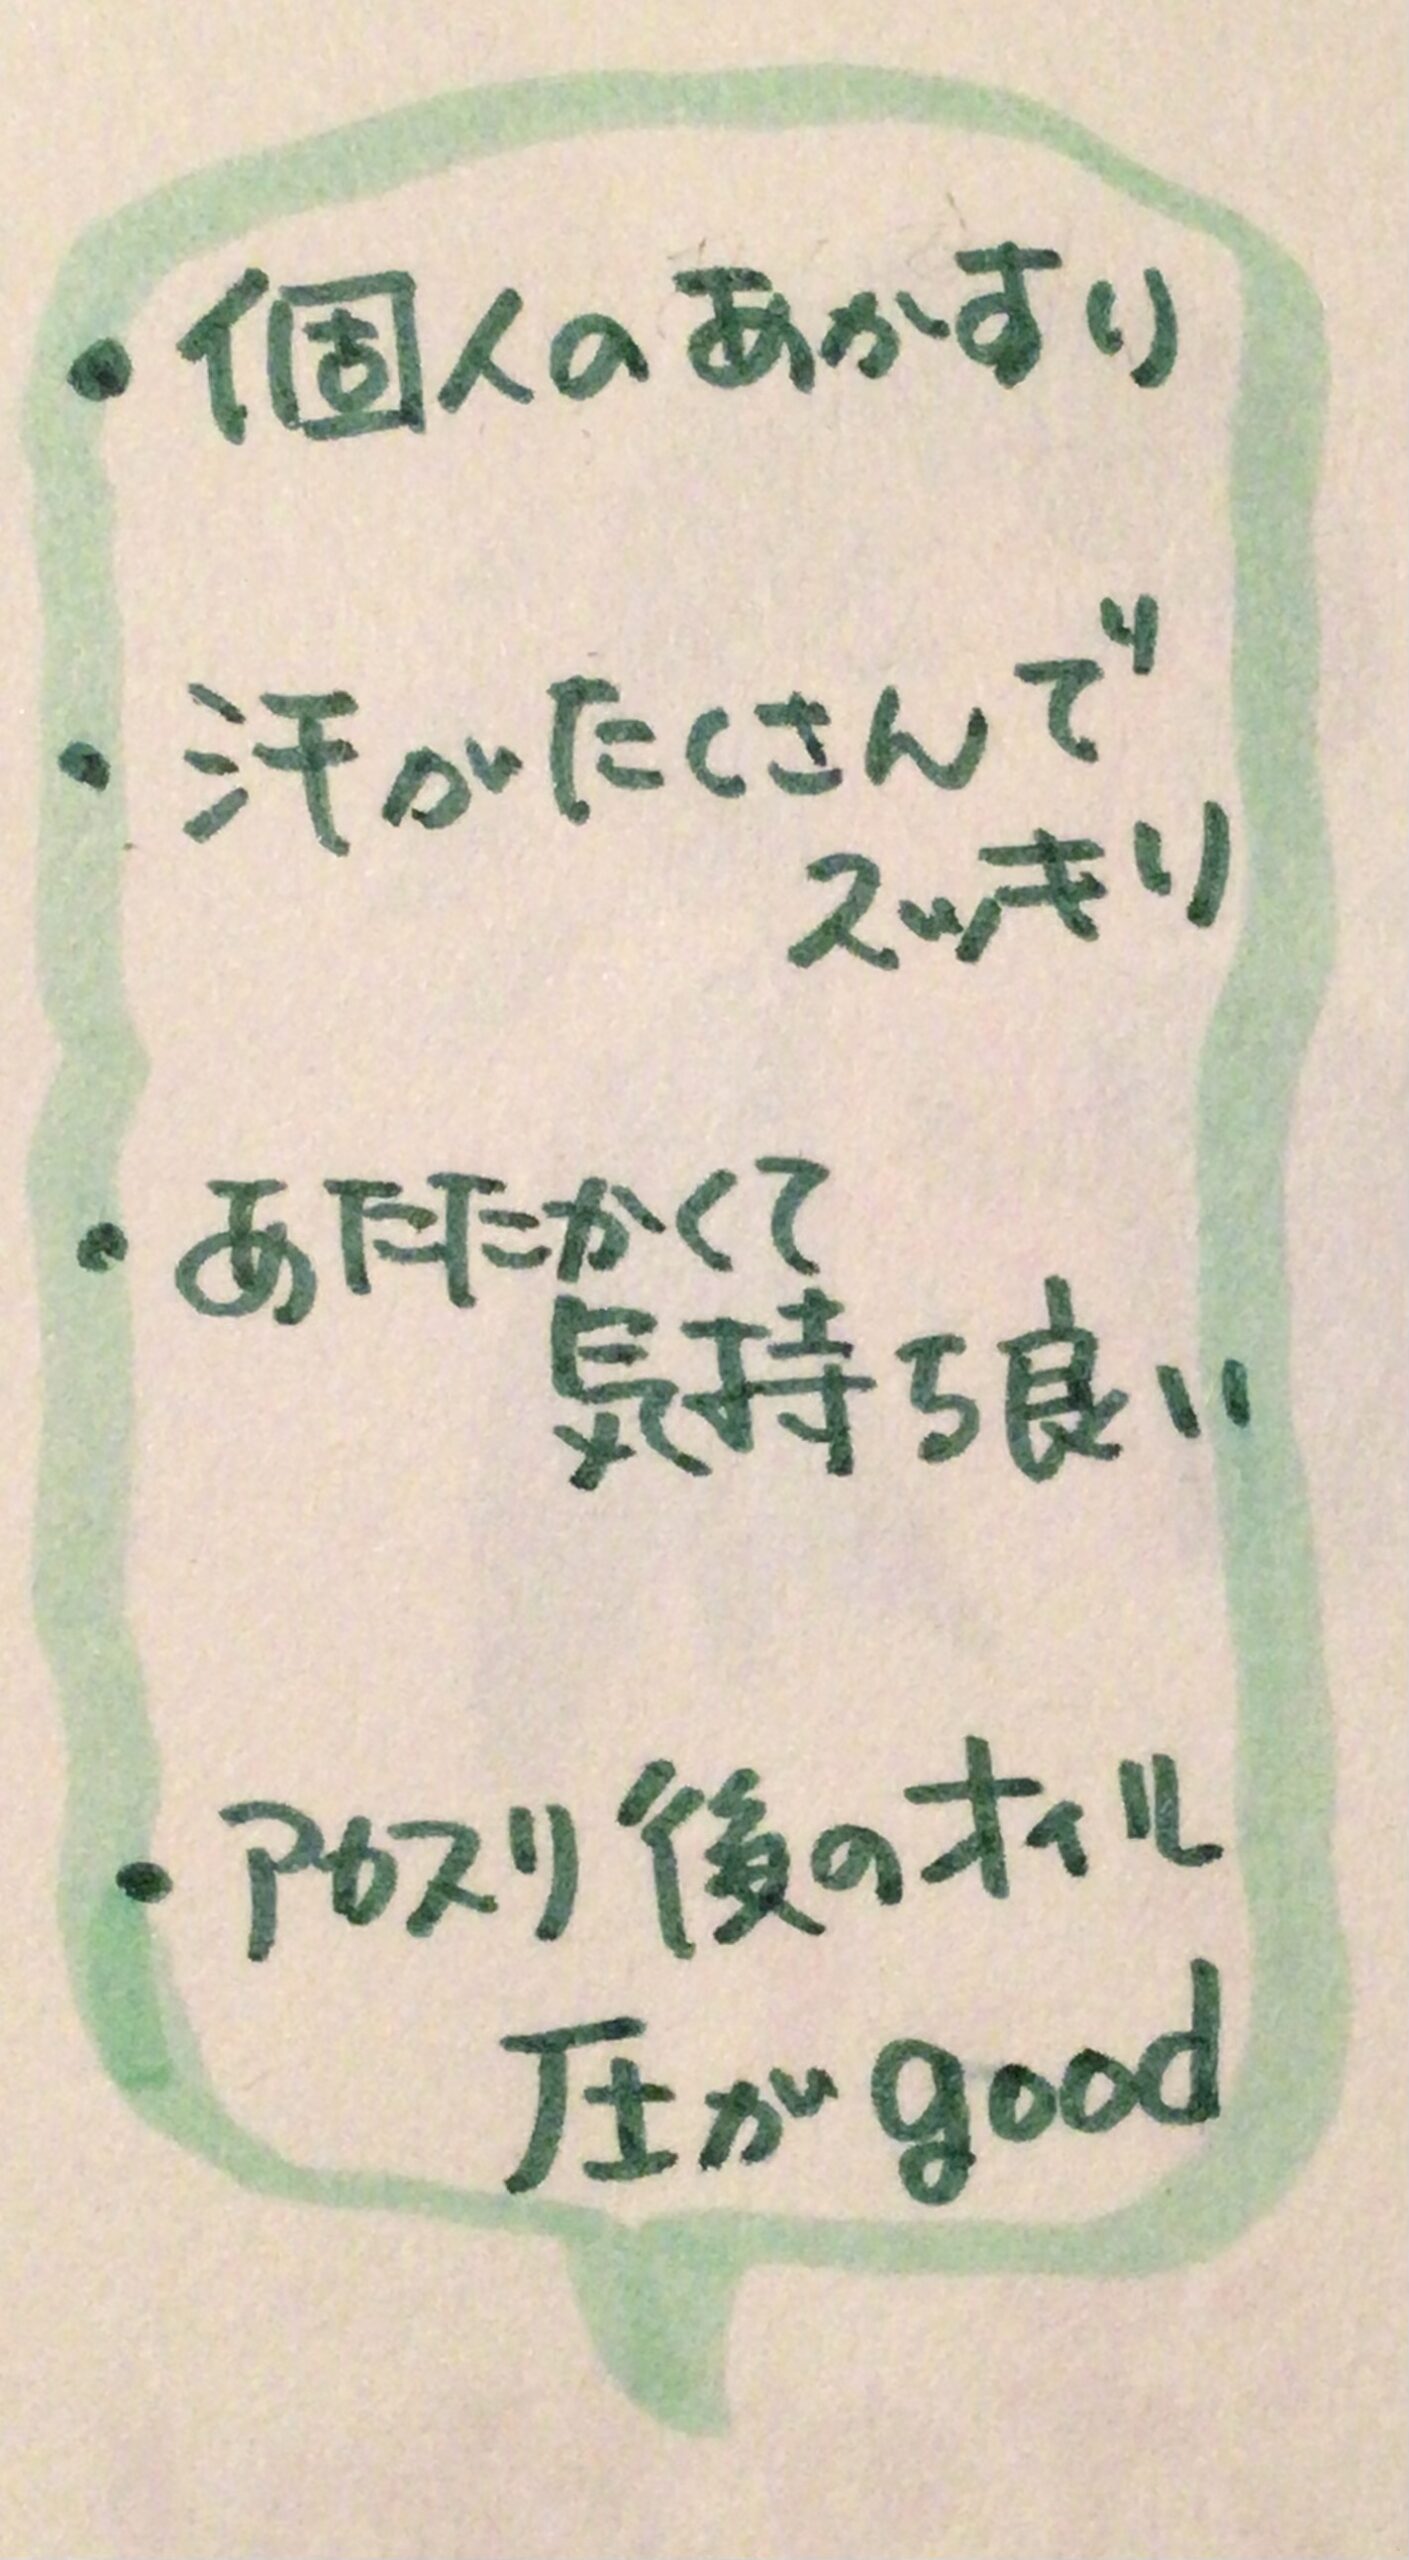 ・個人のあかすり
・汗がたくさんで
スッキリ
・あたたかくて
気持ち良い
・アカスリ後のオイル
圧がgood